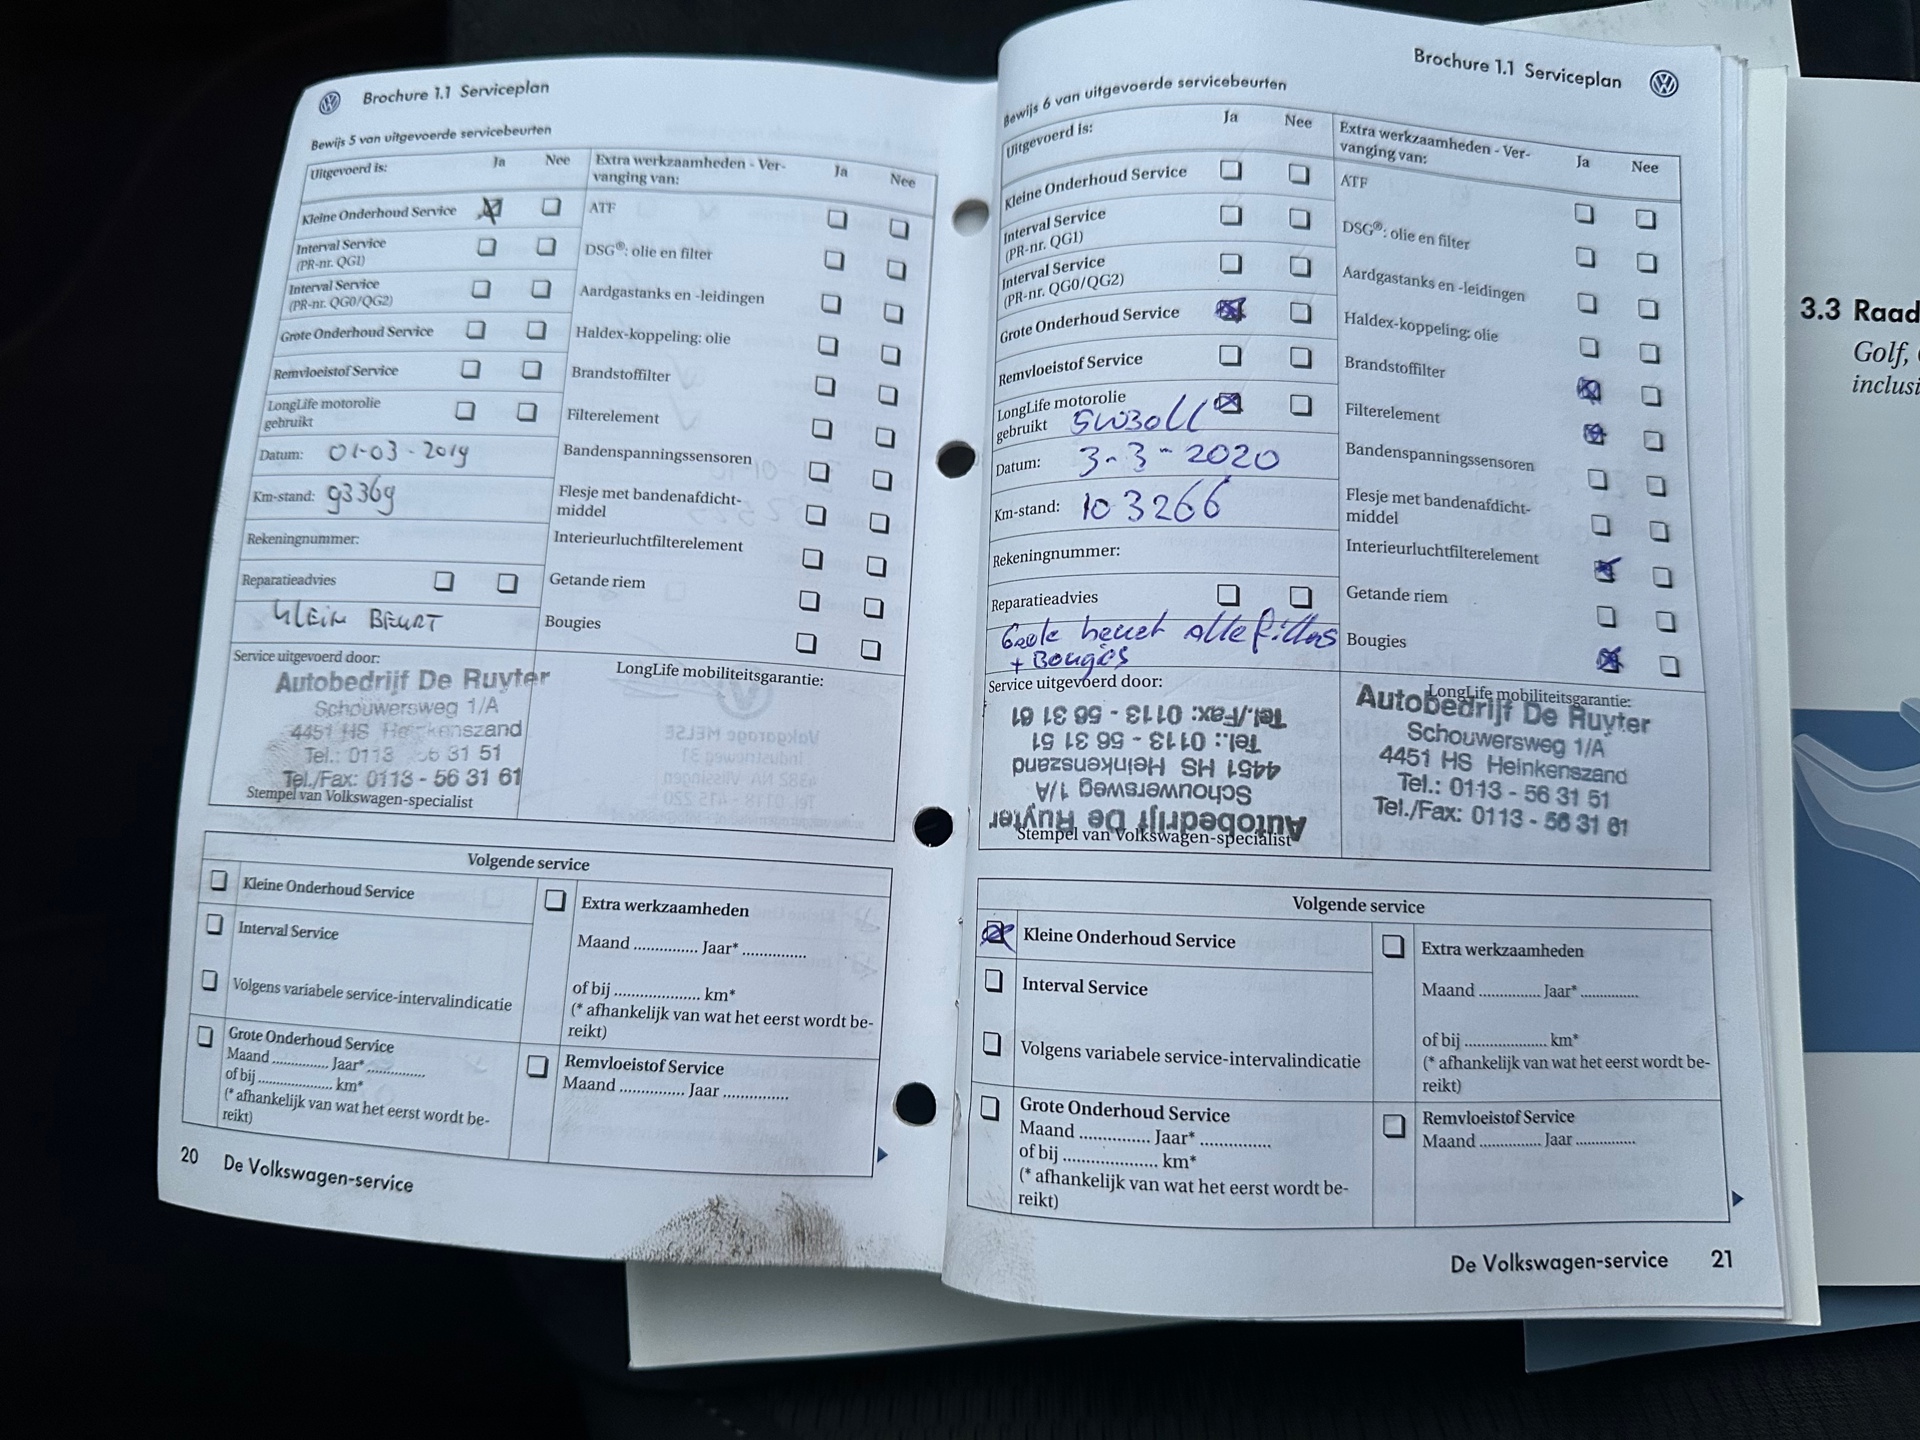 Brochure 1.1 Serviceplan
Bewijs 5 van uitgevoerde servicebeurten
Uitgevoerd is:
Ja
Nee
Extra werkzaamheden - Ver-
vanging van:
Ja
Nee
Kleine Onderhoud Service
Interval Service
(PR-nr. QG1)
Interval Service
(PR-nr. QG0/QG2)
Grote Onderhoud Service
Remvloeistof Service
LongLife motorolie
gebruikt
Datum: 01-03-2019
Km-stand: 93369
Rekeningnummer:
Reparatieadvies
KLEIN BEURT
ATF
DSG®: olie en filter
Aardgastanks en -leidingen
Haldex-koppeling: olie
Brandstoffilter
Filterelement
Bandenspanningssensoren
Flesje met bandenafdicht-
middel
Interieurluchtfilterelement
Getande riem
Bougies
Service uitgevoerd door:
Autobedrijf De Ruyter
Schouwersweg 1/A
4451 HS Heinkenszand
Tel.: 0113 56 31 51
Tel./Fax: 0113 - 56 31 61
Stempel van Volkswagen-specialist
LongLife mobiliteitsgarantie:
Volgende service
Kleine Onderhoud Service
Interval Service
Volgens variabele service-intervalindicatie
Grote Onderhoud Service
Maand ............. Jaar* .............
of bij ................. km*
(* afhankelijk van wat het eerst wordt be-
reikt)
Extra werkzaamheden
Maand .............. Jaar* ..............
of bij .................... km*
(* afhankelijk van wat het eerst wordt be-
reikt)
Remvloeistof Service
Maand .............. Jaar ..............
20 De Volkswagen-service
Brochure 1.1 Serviceplan
Bewijs 6 van uitgevoerde servicebeurten
Uitgevoerd is:
Ja
Nee
Extra werkzaamheden - Ver-
vanging van:
Ja
Nee
Kleine Onderhoud Service
Interval Service
(PR-nr. QG1)
Interval Service
(PR-nr. QG0/QG2)
Grote Onderhoud Service
Remvloeistof Service
LongLife motorolie
gebruikt 5W30LL
Datum: 3-3-2020
Km-stand: 103266
Rekeningnummer:
Reparatieadvies
beurt Alle filters
+ Bougies
ATF
DSG®: olie en filter
Aardgastanks en -leidingen
Haldex-koppeling: olie
Brandstoffilter
Filterelement
Bandenspanningssensoren
Flesje met bandenafdicht-
middel
Interieurluchtfilterelement
Getande riem
Bougies
Service uitgevoerd door:
Autobedrijf De Ruyter
Schouwersweg 1/A
4451 HS Heinkenszand
Tel.: 0113 - 56 31 51
Tel./Fax: 0113 - 56 31 61
Stempel van Volkswagen-specialist
LongLife mobiliteitsgarantie:
Autobedrijf De Ruyter
Schouwersweg 1/A
4451 HS Heinkenszand
Tel.: 0113 - 56 31 51
Tel./Fax: 0113 - 56 31 61
Volgende service
Kleine Onderhoud Service
Interval Service
Volgens variabele service-intervalindicatie
Grote Onderhoud Service
Maand .............. Jaar* ..............
of bij .................... km*
(* afhankelijk van wat het eerst wordt be-
reikt)
Extra werkzaamheden
Maand .............. Jaar* ..............
of bij .................... km*
(* afhankelijk van wat het eerst wordt be-
reikt)
Remvloeistof Service
Maand .............. Jaar ..............
De Volkswagen-service 21
3.3 Raad
Golf,
inclusi